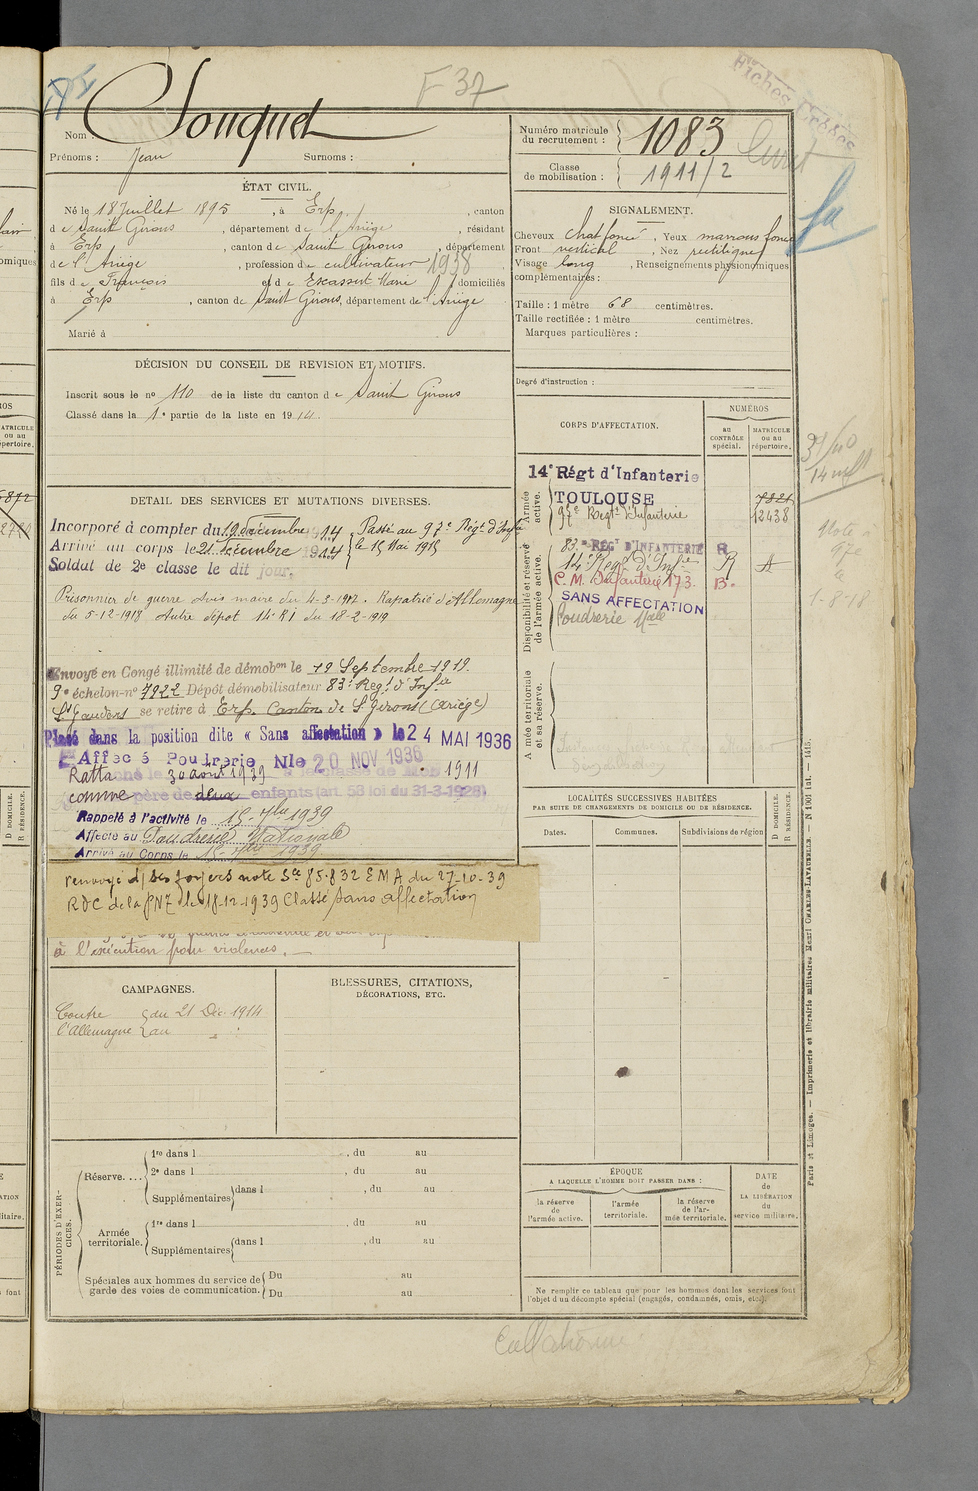 F 37
Nom Souquet
Prénoms : Jean Surnoms :
Numéro matricule du recrutement : 1083
Classe de mobilisation : 1911/2
ÉTAT CIVIL.
Né le 18 Juillet 1895, à Erp, canton
de Saint Girons, département de l'Ariège, résidant
à Erp, canton de Saint Girons, département
de l'Ariège, profession de cultivateur 1938
fils de François et de Escassut Marie domiciliés
à Erp, canton de Saint Girons, département de l'Ariège
Marié à
SIGNALEMENT.
Cheveux chat foncé, Yeux marrons foncé
Front vertical, Nez rectiligne
Visage long, Renseignements physionomiques
complémentaires :
Taille : 1 mètre 68 centimètres.
Taille rectifiée : 1 mètre centimètres.
Marques particulières :
Degré d'instruction :
DÉCISION DU CONSEIL DE REVISION ET MOTIFS.
Inscrit sous le no 110 de la liste du canton de Saint Girons
Classé dans la 1e partie de la liste en 1914.
CORPS D'AFFECTATION.
NUMÉROS
AU CONTRÔLE spécial.
MATRICULE OU AU répertoire.
Armée active.
14e Régt d'Infanterie
TOULOUSE 7321
97e Régt d'Infanterie 12438
Disponibilité et réserve de l'armée active.
83e RÉGt D'INFANTERIE R
14e Régt d'Infie R A
C. M. Infanterie 173. B.
SANS AFFECTATION
Poudrerie Nale
Armée territoriale et sa réserve.
DETAIL DES SERVICES ET MUTATIONS DIVERSES.
Incorporé à compter du 19 décembre 1914, Passé au 97e Régt d'Infie
Arrivé au corps le 21 décembre 1914 le 15 Mai 1915
Soldat de 2e classe le dit jour.
Prisonnier de guerre avis maire du 4-3-1917. Rapatrié d'Allemagne
du 5-12-1918 Autre dépot 14e RI du 18-2-1919
Envoyé en Congé illimité de démobon le 12 Septembre 1919.
9e échelon no 7922 Dépôt démobilisateur 83e Regt d'Infie
St Gaudens se retire à Erp Canton de St Girons (Ariège)
Placé dans la position dite « Sans affectation » le 24 MAI 1936
Affecté Poudrerie Nle 20 NOV 1936
Ratta 30 août 1939 à la classe de Mob 1911
comme père de deux enfants (art. 58 loi du 31-3-1928).
Rappelé à l'activité le 15-7bre 1939
Affecté au Poudrerie Nationale
Arrivé au Corps le 15-7bre 1939
renvoyé ds ses foyers note Sce 85.832 EMA du 27-10-39
RDC de la PNZ le 18-12-1939 Classé sans affectation
à l'exécution pour violences.
LOCALITÉS SUCCESSIVES HABITÉES
PAR SUITE DE CHANGEMENTS DE DOMICILE OU DE RÉSIDENCE.
Dates. Communes. Subdivisions de région
D DOMICILE. R RÉSIDENCE.
CAMPAGNES.
Contre l'Allemagne du 21 Déc. 1914
au
BLESSURES, CITATIONS,
DÉCORATIONS, ETC.
PÉRIODES D'EXERCICES.
Réserve....
1re dans l , du au
2e dans l , du au
Supplémentaires dans l , du au
Armée territoriale.
1re dans l , du au
Supplémentaires dans l , du au
Spéciales aux hommes du service de garde des voies de communication.
Du au
Du au
ÉPOQUE
A LAQUELLE L'HOMME DOIT PASSER DANS :
la réserve de l'armée active.
l'armée territoriale.
la réserve de l'armée territoriale.
DATE de LA LIBÉRATION du service militaire.
Ne remplir ce tableau que pour les hommes dont les services font
l'objet d'un décompte spécial (engagés, condamnés, omis, etc.).
Paris et Limoges. — Imprimerie et librairie militaires Henri CHARLES-LAVAUZELLE. — N 1001 int. — 1415.
14
Note
97e
1-8-18